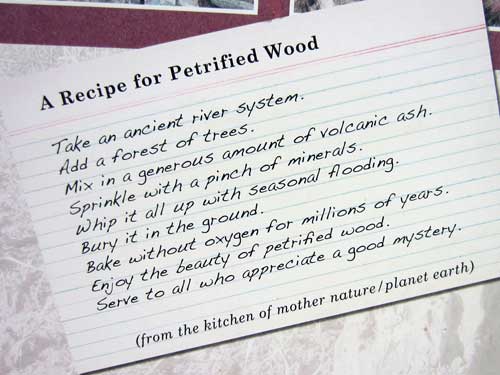 A Recipe for Petrified Wood
Take an ancient river system.
Add a forest of trees.
Mix in a generous amount of volcanic ash.
Sprinkle with a pinch of minerals.
Whip it all up with seasonal flooding.
Bury it in the ground.
Bake without oxygen for millions of years.
Enjoy the beauty of petrified wood.
Serve to all who appreciate a good mystery.
(from the kitchen of mother nature/planet earth)